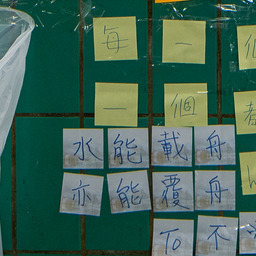 每 一
一 個
水 能 載 舟
亦 能 覆 舟
To 不